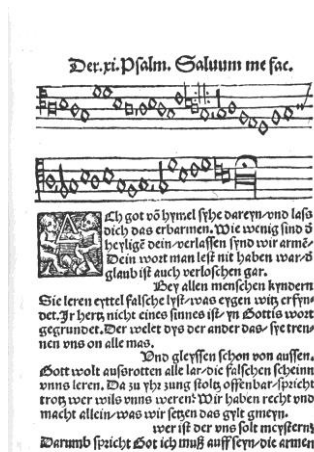 Der .xi. Psalm. Saluum me fac.
Ach got võ hymel syhe dareyn vnd lass
dich das erbarmen. Wie wenig sind d̓
heylige dein verlassen synd wir armẽ
Dein wort man lest nit haben war d̓
glaub ist auch verloschen gar.
Bey allen menschen kyndern
Sie leren eyttel falsche lyst was eygen witz erfyn⸗
det. Jr hertz nicht eines sinnes ist yn Gottis wort
gegrundet. Der welet dys der ander das sye tren⸗
nen vns on alle mas.
Vnd gleyssen schon von aussen.
Gott wolt ausrotten alle lar die falschen scheinn
vnns leren. Da zu yhr zung stoltz offenbar spricht
trotz wer wils vnns weren? Wir haben recht vnd
macht allein was wir setzen das gylt gmeyn.
wer ist der vns solt meystern
Darumb spricht Got ich muß auff seyn die armen